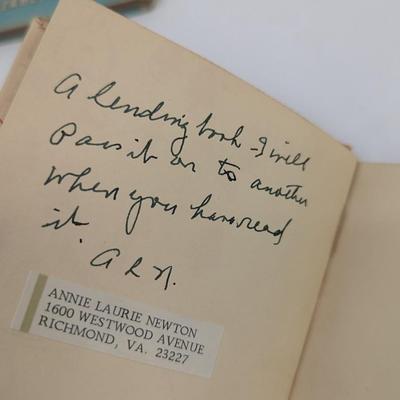 A lending book - I will
Pass it on to another
When you have read
it.
A L N.
ANNIE LAURIE NEWTON
1600 WESTWOOD AVENUE
RICHMOND, VA. 23227